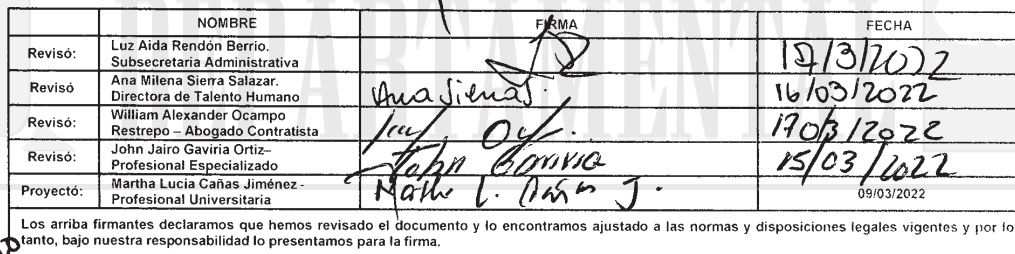 DEPARTAMENTAL
NOMBRE FIRMA FECHA
Revisó: Luz Aida Rendón Berrio.
Subsecretaria Administrativa 17/3/2022
Revisó Ana Milena Sierra Salazar.
Directora de Talento Humano Ana Sierra S. 16/03/2022
Revisó: William Alexander Ocampo
Restrepo – Abogado Contratista 1703/2022
Revisó: John Jairo Gaviria Ortiz–
Profesional Especializado John Gaviria 15/03/2022
Proyectó: Martha Lucía Cañas Jiménez -
Profesional Universitaria Martha L. Cañas J. 09/03/2022
Los arriba firmantes declaramos que hemos revisado el documento y lo encontramos ajustado a las normas y disposiciones legales vigentes y por lo
tanto, bajo nuestra responsabilidad lo presentamos para la firma.